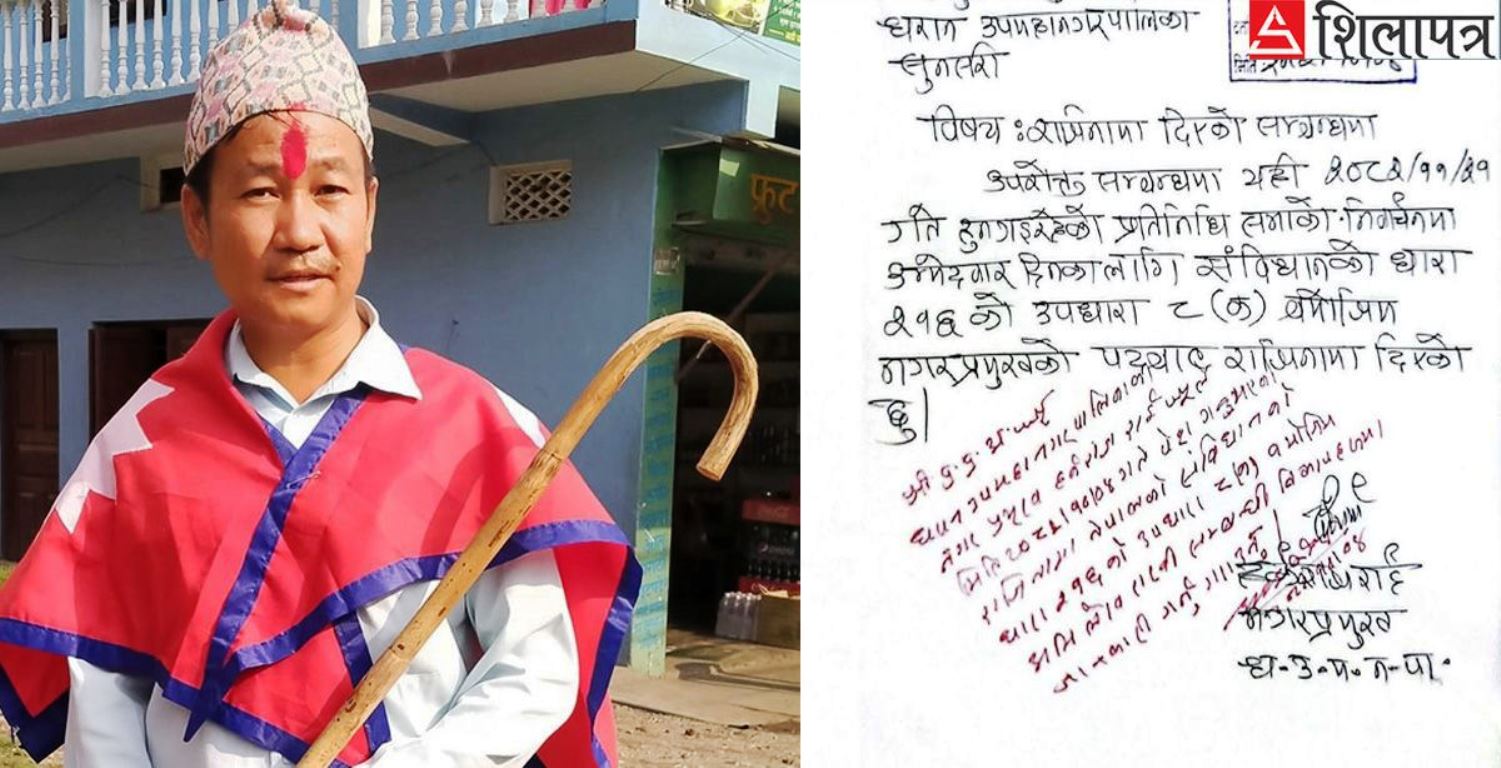 फ्रुट
शिलापत्र
धरान उपमहानगरपालिका
सुनसरी
मिति
विषय : राजिनामा दिएको सम्बन्धमा
उपरोक्त सम्बन्धमा यही २०८२/११/२१
गते हुनगइरहेको प्रतिनिधि सभाको निर्वाचनमा
उम्मेदवार दिनका लागि संविधानको धारा
२१६ को उपधारा ८ (क) बमोजिम
नगरप्रमुखको पदबाट राजिनामा दिएको
छु।
श्री प्र.प्र.अ.ज्यू
धरान उपमहानगरपालिकाका
नगर प्रमुख हर्कराज राई ज्यूले
मिति २०८२।१०।०४ गते पेश गर्नुभएको
राजिनामा नेपालको संविधानको
धारा २१६ को उपधारा ८(क) बमोजिम
अभिलेख राखी सम्बन्धी निकायहरूमा
जानकारी गर्नु गराउनु।
नगरप्रमुख
ध.उ.म.न.पा.